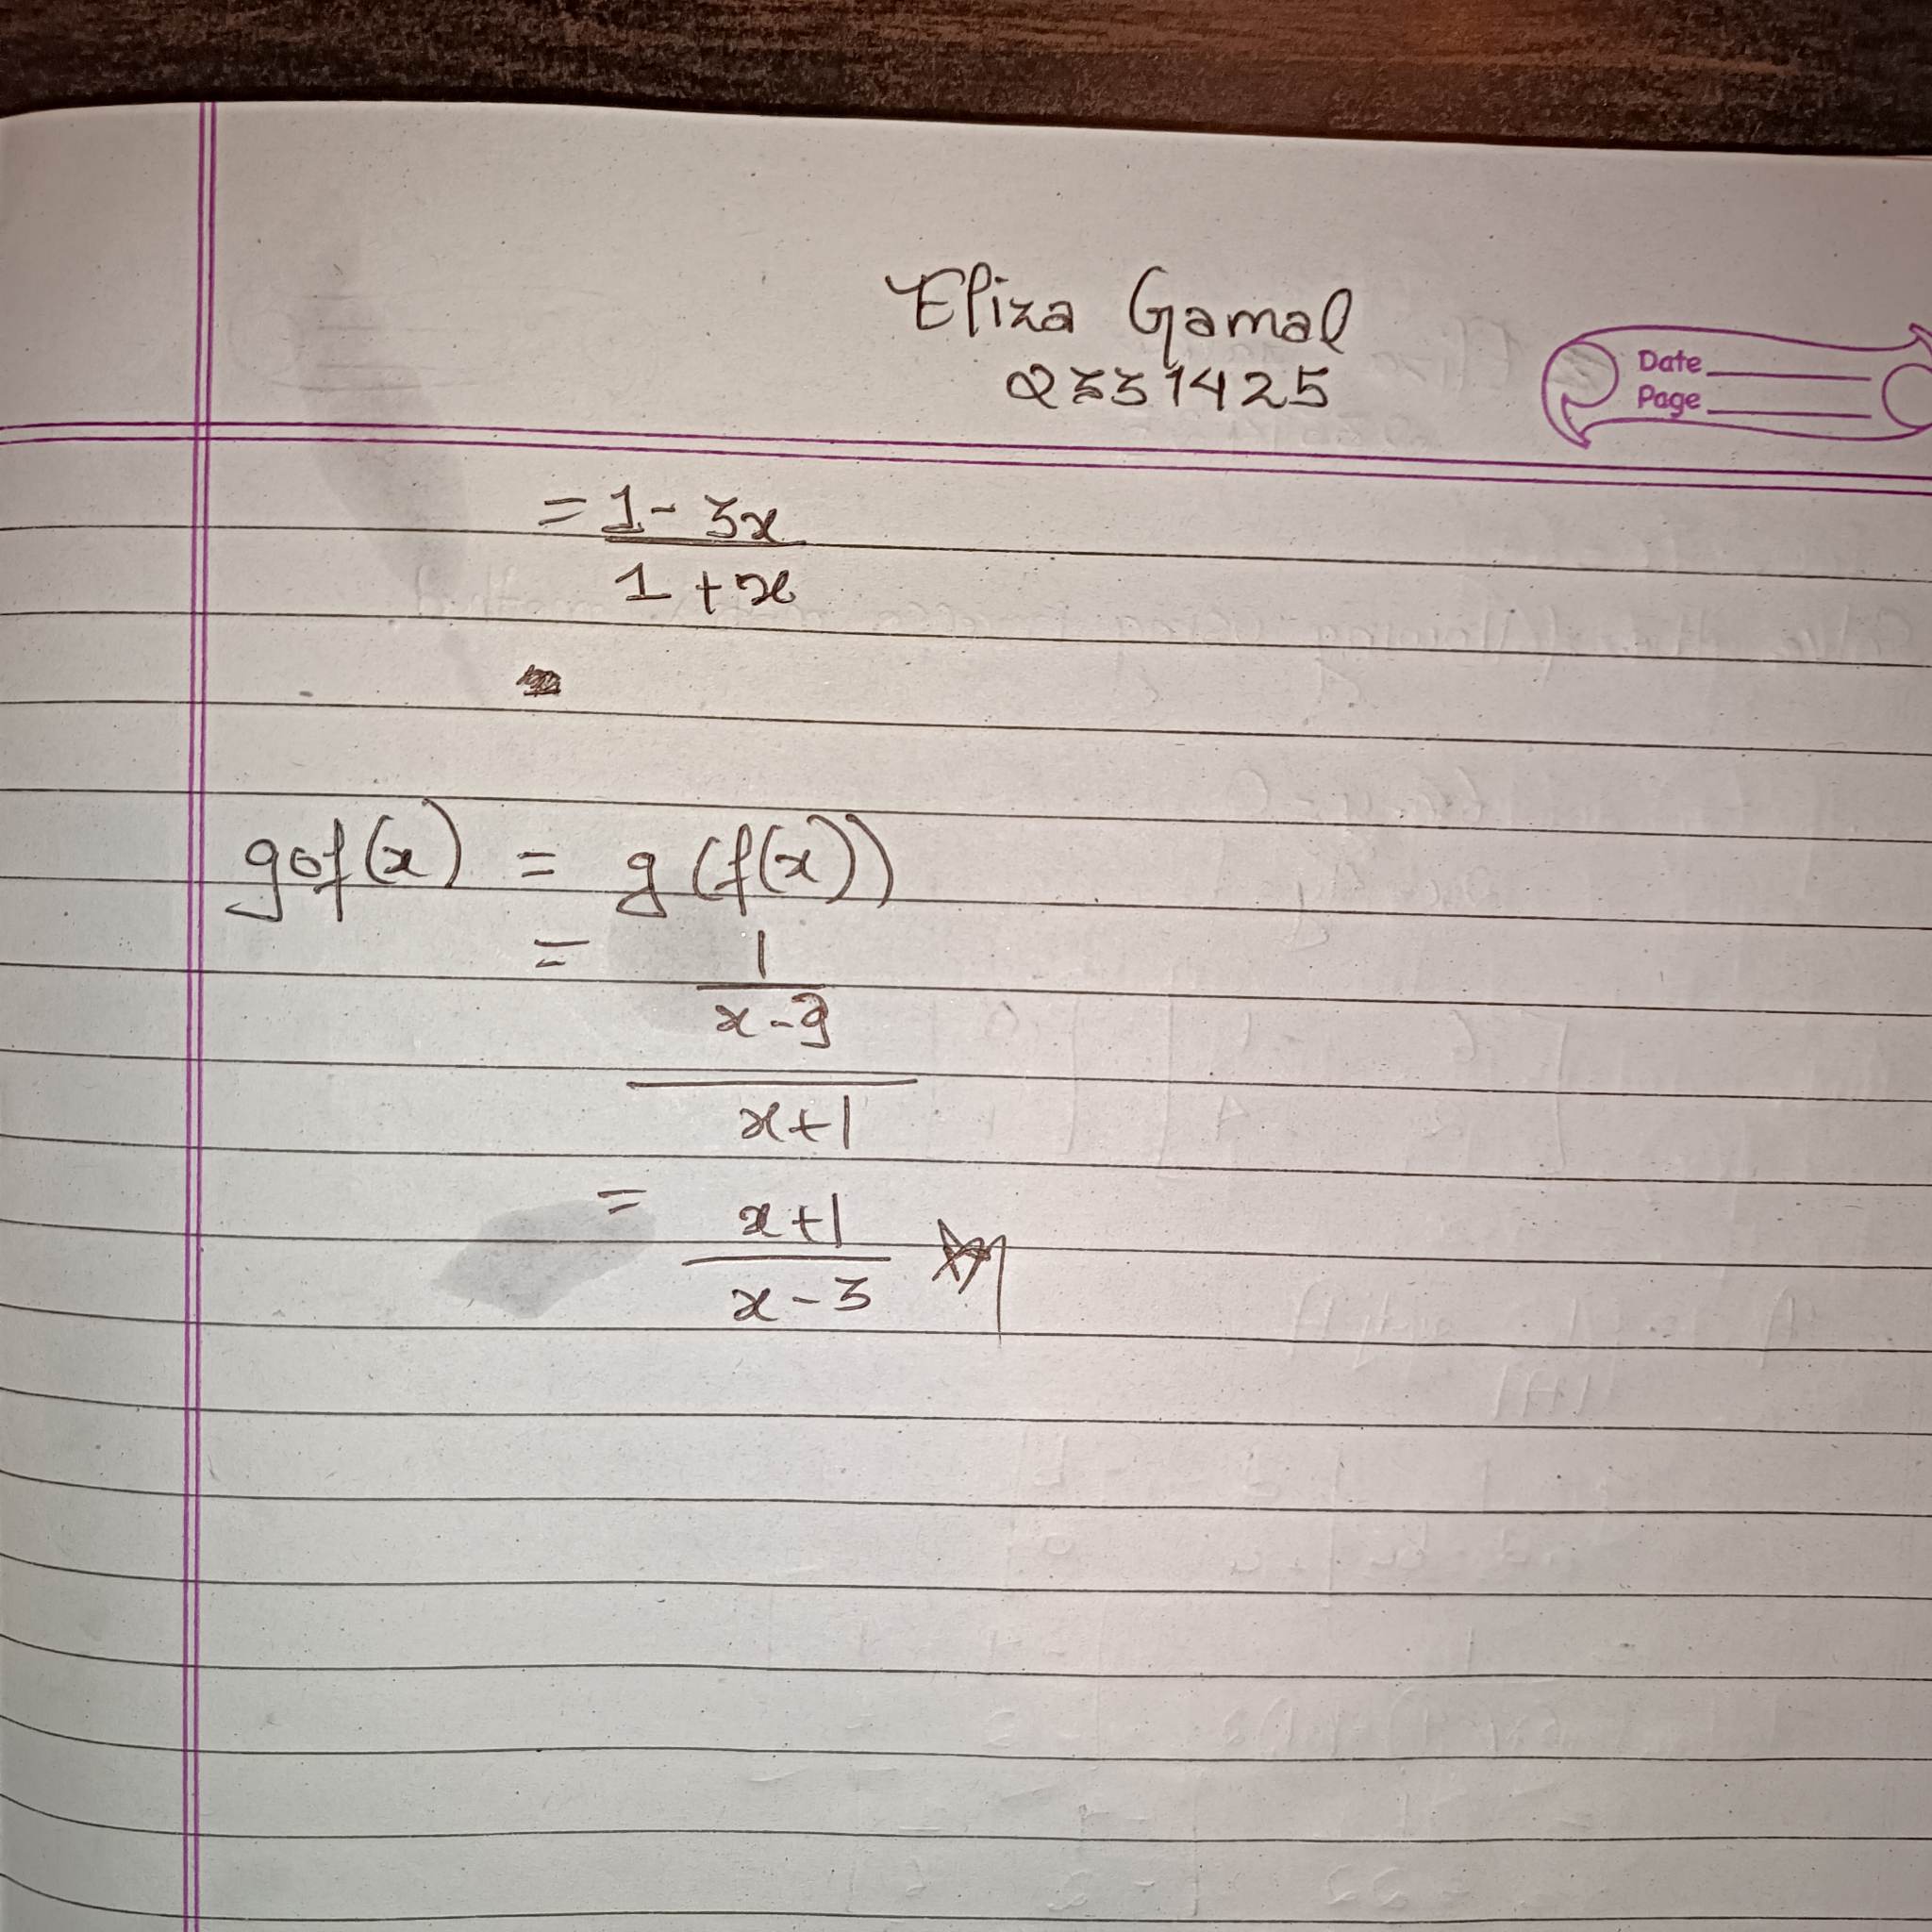 Eliza Gamal
2331425
Date
Page
= 1 - 3x
1 + x
gof(x) = g(f(x))
= 1
x-3
x+1
= x+1
x-3